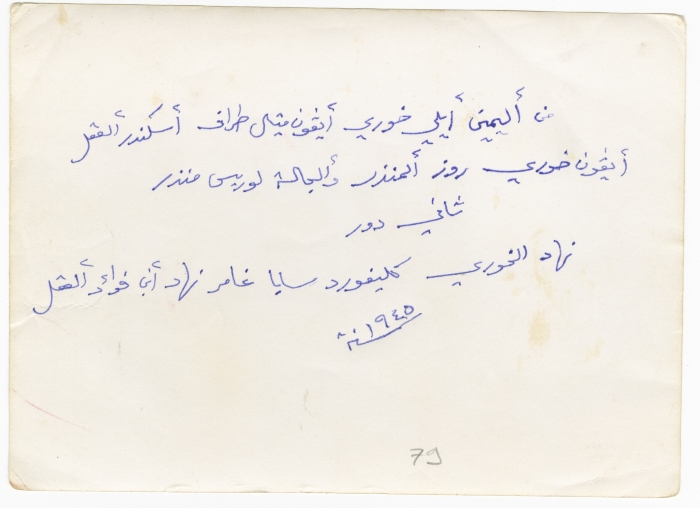 من أليمين أيلي خوري أيڤون ميشال طراف أسكندر ألعقل
أيڤون خوري روز ألمنذر وألجالسة لوريس منذر
ثاني دور
نهاد الخوري كليفورد سابا غامر نهاد أبي فؤاد ألعقل
سنة ١٩٤٥
79